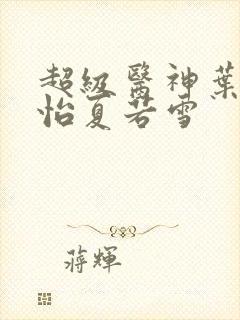 超級醫神葉
怡夏若雪
蔣輝